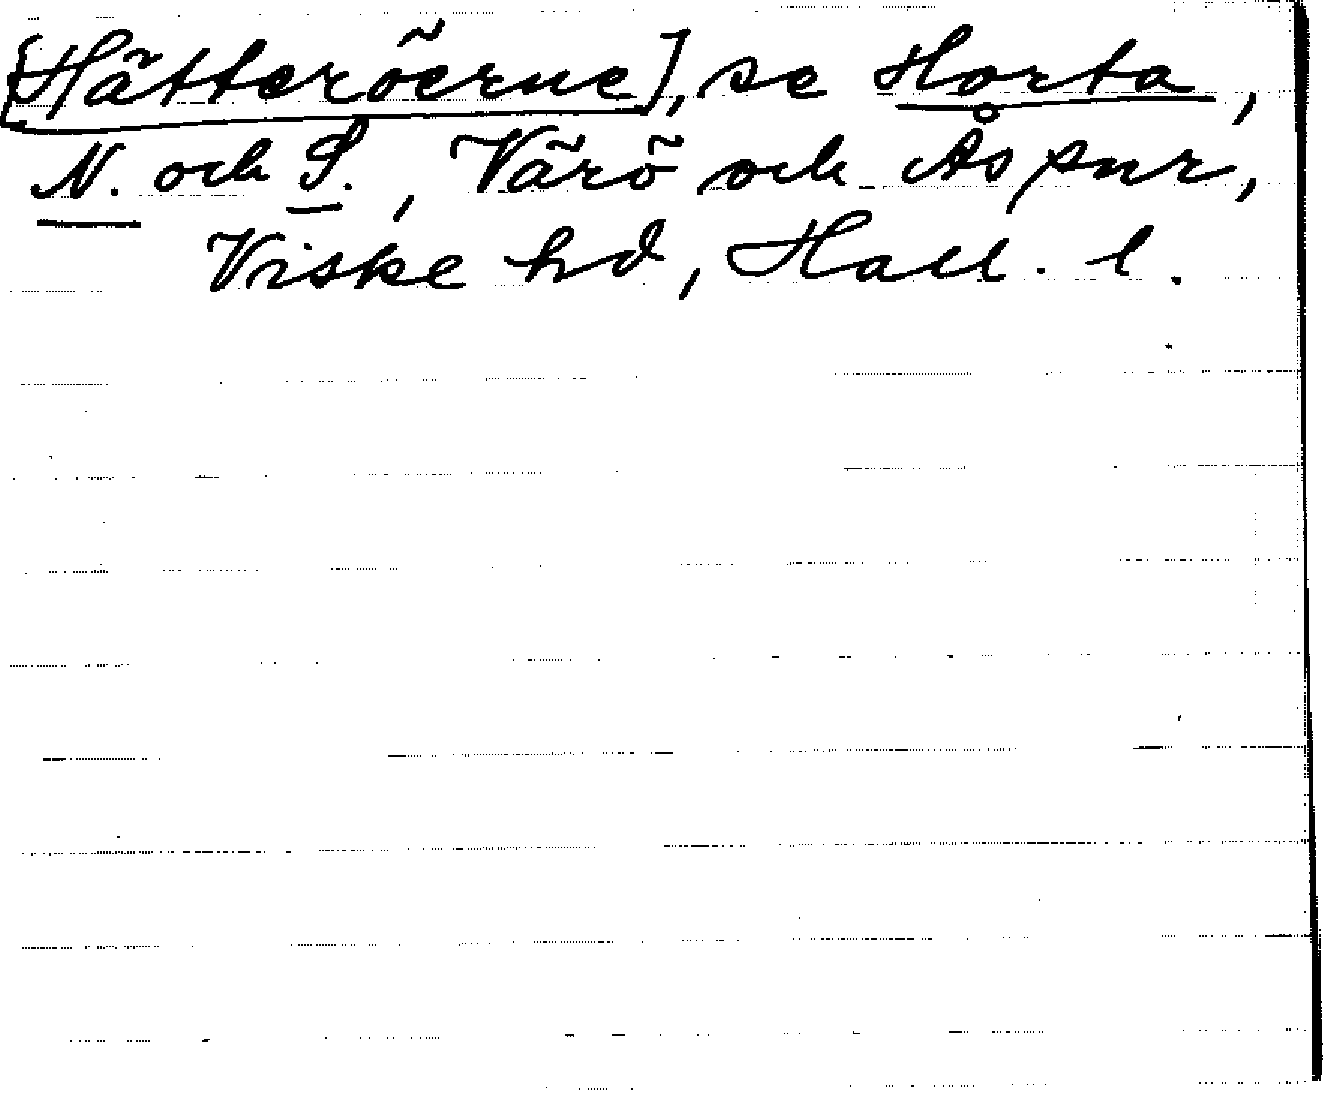 [Hätteröerne], se Horta,
N. och S., Värö och Ås snr,
Viske hd, Hall. l.